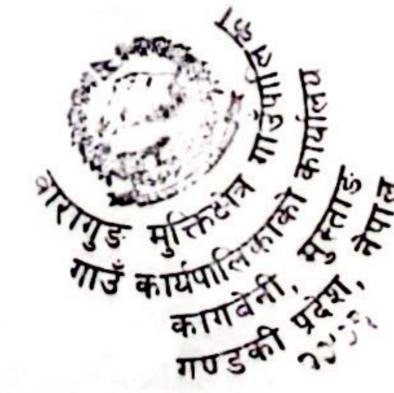 वारागुङ मुक्तिक्षेत्र गाउँपालिका
गाउँ कार्यपालिकाको कार्यालय
कागवेनी, मुस्ताङ
गण्डकी प्रदेश, नेपाल